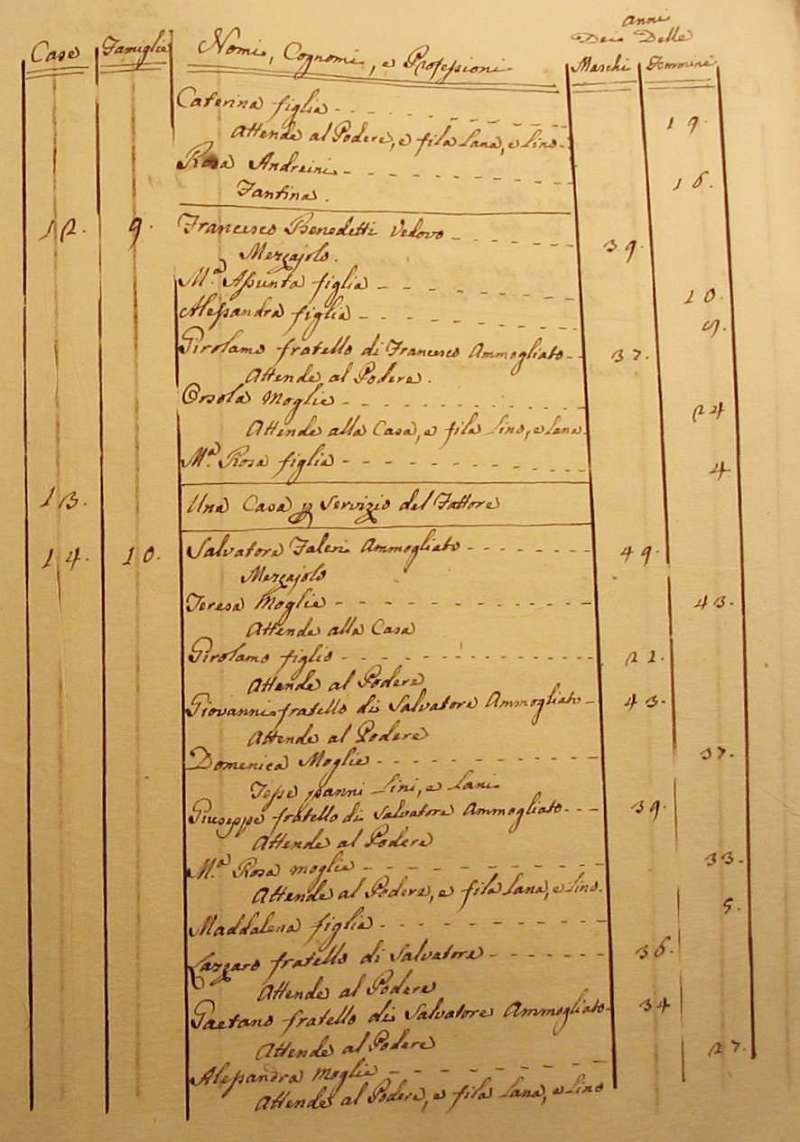 anni
Dei Delle
Case Famiglie Nomi, Cognomi, e Professioni Maschi Femmine
Caterina figlia 19.
Attende al Podere, e fila Lana, e Lino.
Rosa Andreini 16.
Fantina.
12. 9. Francesco Benedetti Vedovo 39.
Mezzajolo.
M.a Assunta figlia 10.
Alessandra figlia
Girolamo fratello di Francesco Ammogliato 37.
Attende al Podere.
Orsola Moglie 24
Attende alla Casa, e fila Lino, e Lana.
M.a Rosa figlia 4.
13. Una Casa p Servizio del Fattore
14. 10. Salvatore Faleri Ammogliato 49.
Mezzajolo
Teresa Moglie 43.
Attende alla Casa
Girolamo figlio 22.
Attende al Podere
Giovanni fratello di Salvatore Ammogliato 43.
Attende al Podere
Domenica Moglie 37.
Tesse panni Lini, e Lani
Giuseppe fratello di Salvatore Ammogliato 39.
Attende al Podere
M.a Rosa moglie 33.
Attende al Podere, e fila Lana, e Lino.
Maddalena figlia 5.
Lazzaro fratello di Salvatore 36.
Attende al Podere
Gaetano fratello di Salvatore Ammogliato 34
Attende al Podere
Alessandra Moglie 27.
Attende al Podere, e fila Lana, e Lino